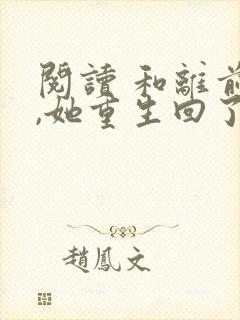 閱讀 和離前
,她重生回了
趙鳳文